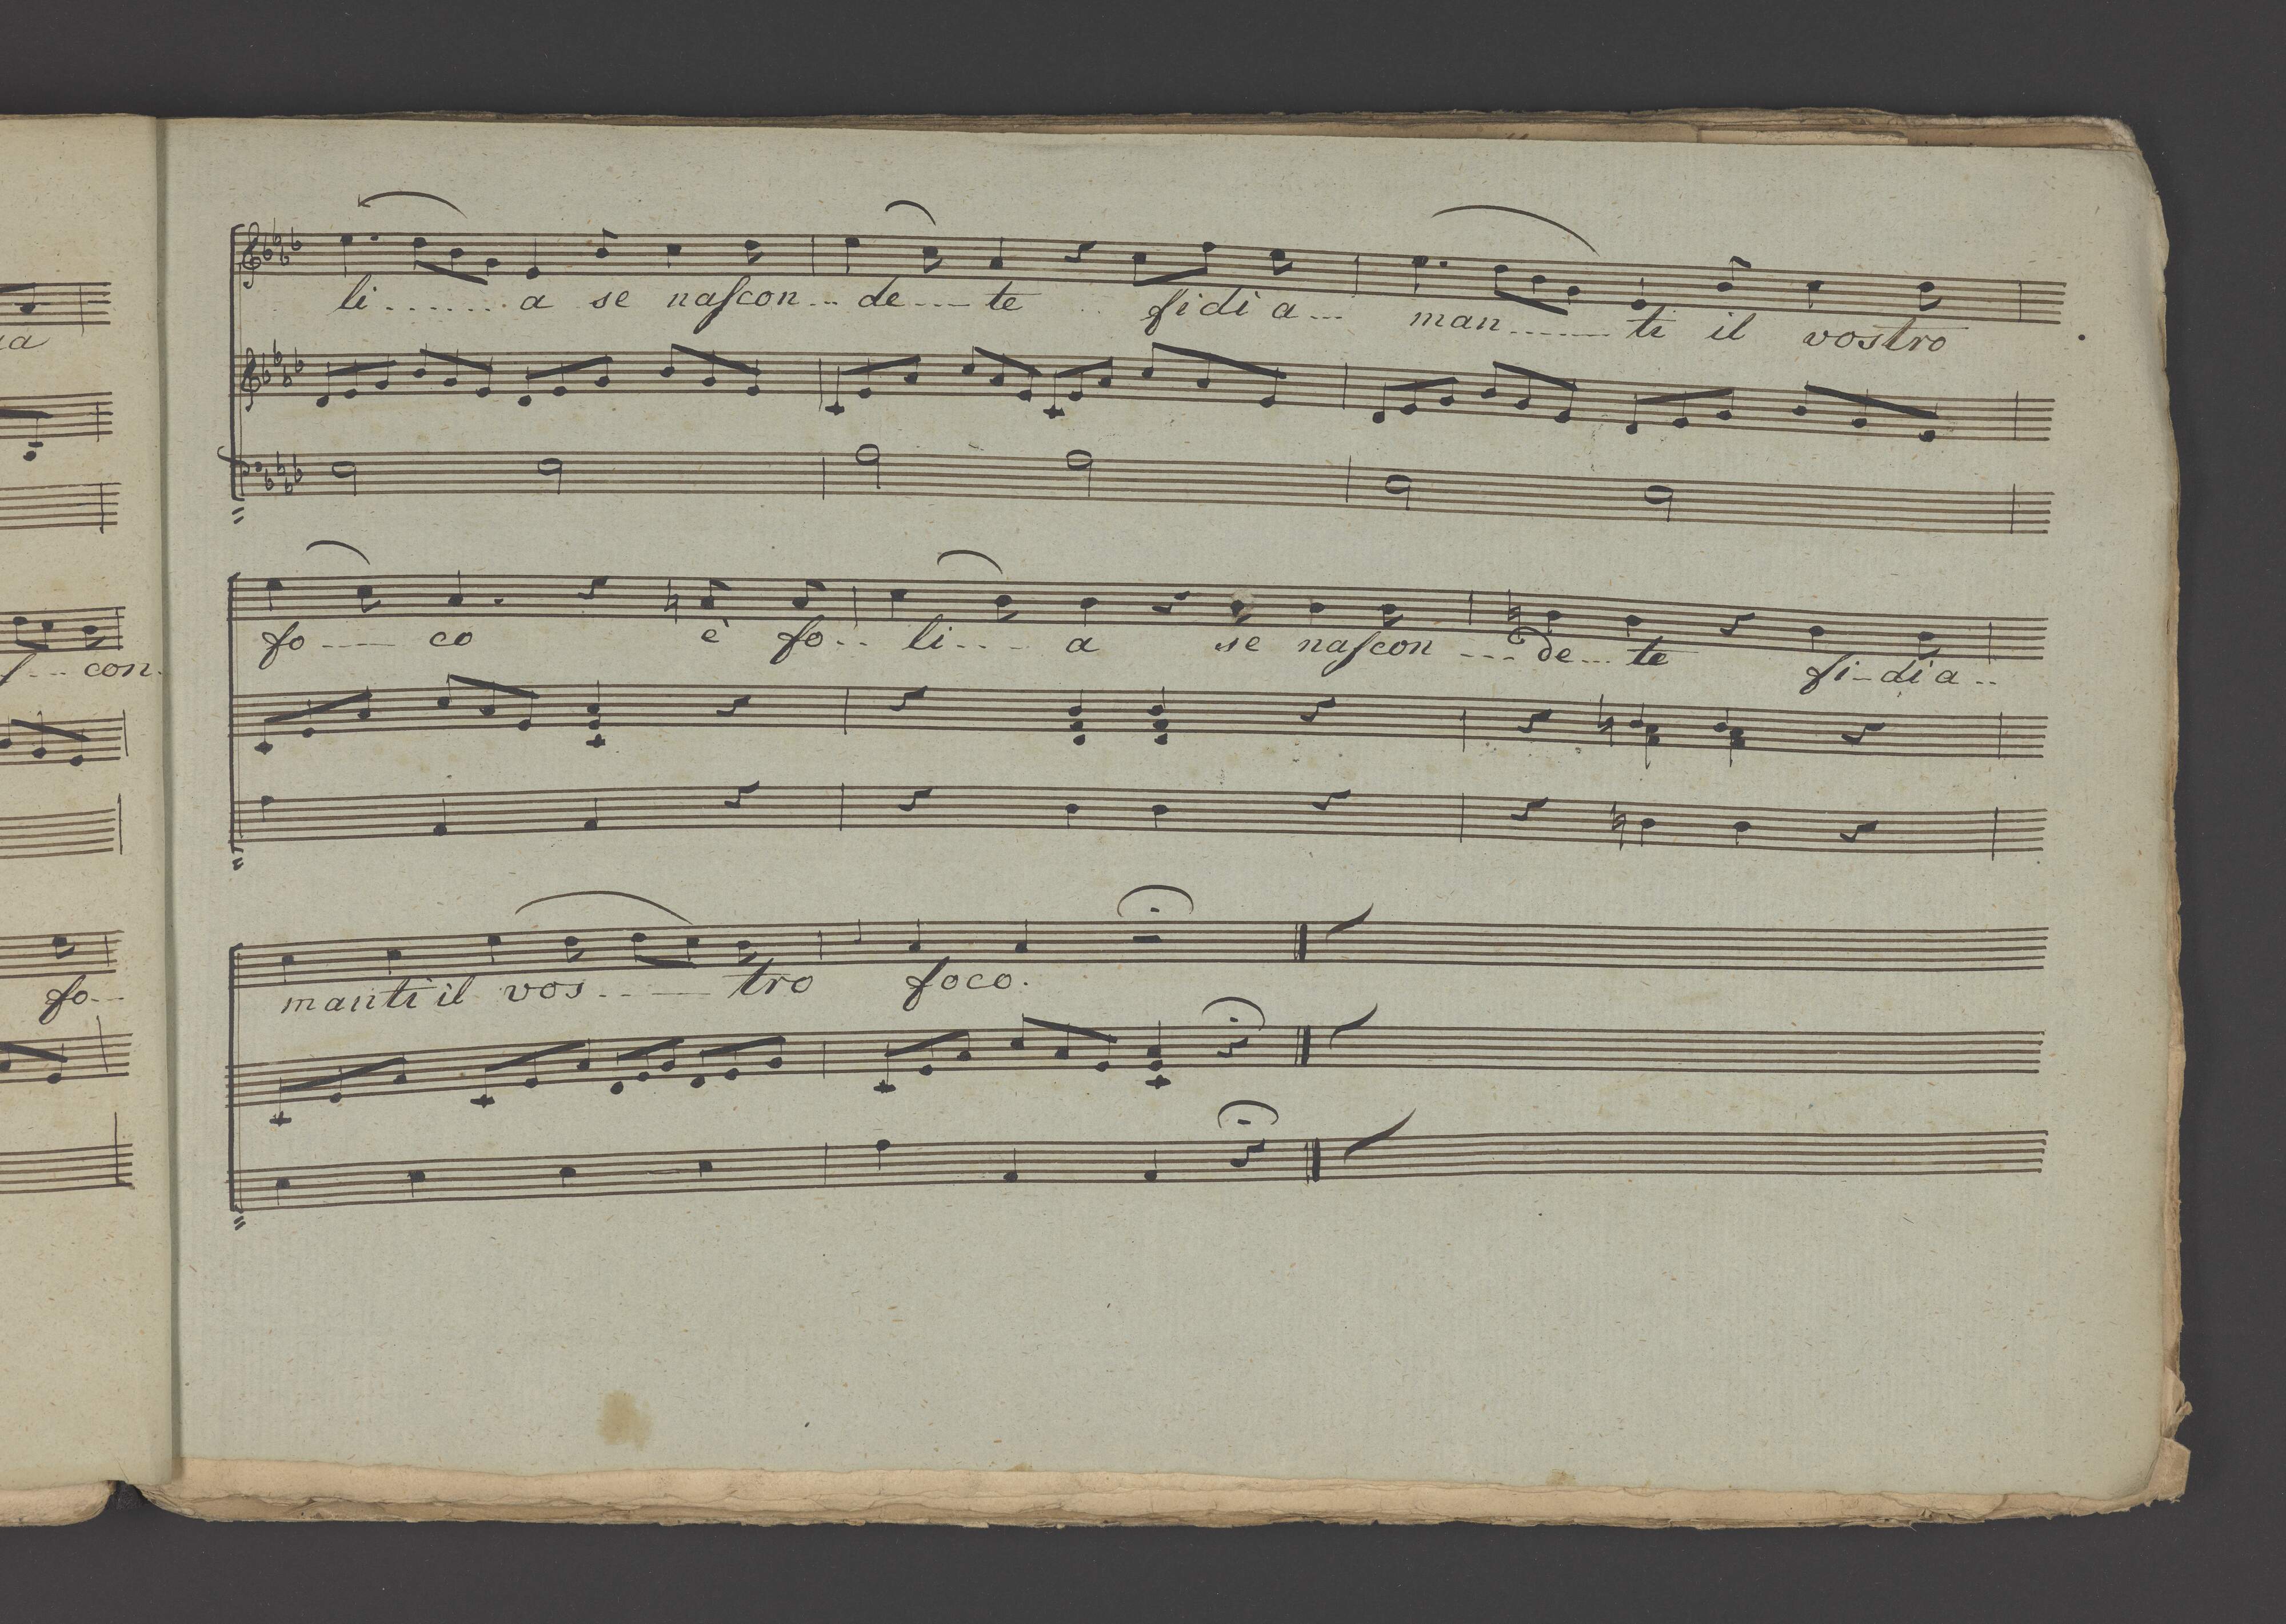 ia
li....... a se naſcon... de---- te fidi a... man....---- ti il vostro
ſ--- con.
fo..---- co è fo... li... a se naſcon ---- de... te fi-di a..
fo...
manti il vos.---- tro foco.